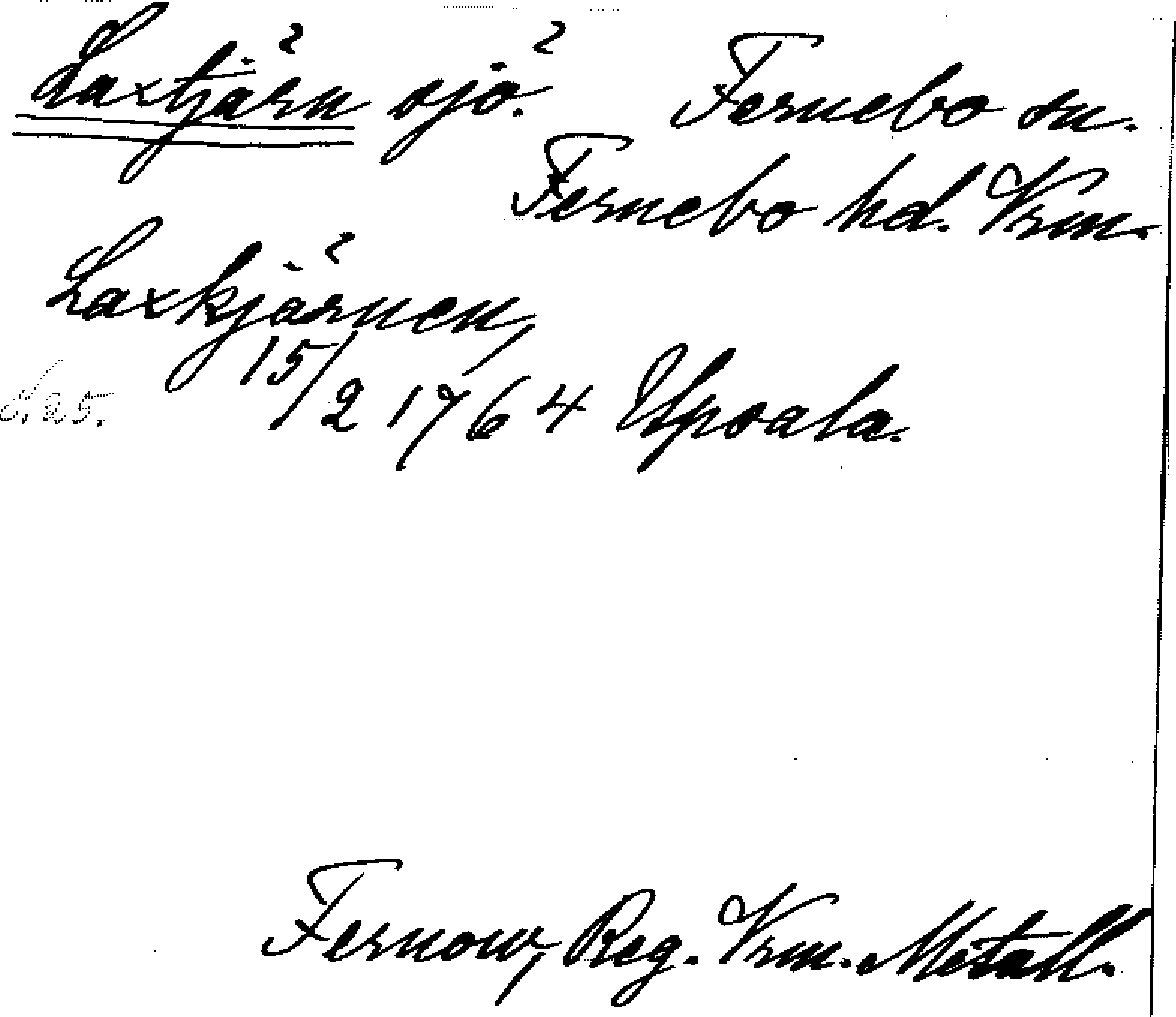 Laxtjärn sjö. Fernebo sn.
Fernebo hd. Vrm.
Laxkjärnen,
15/2 1764 Upsala.
Fernow, Reg. Vrm. Metall.